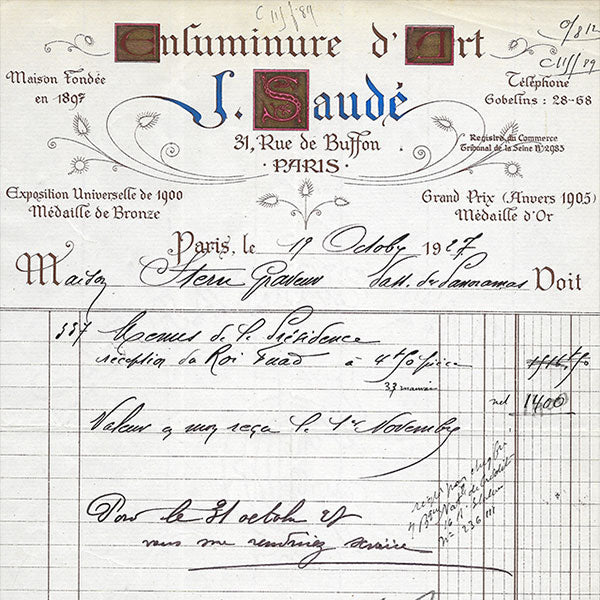 C 11/89
0/812
C11/89
Enluminure d'Art
Maison Fondée
en 1897
J. Saudé
Téléphone
Gobelins : 28-68
31, Rue de Buffon
PARIS
Registre du Commerce
Tribunal de la Seine N° 2983
Exposition Universelle de 1900
Médaille de Bronze
Grand Prix (Anvers 1905)
Médaille d'Or
Paris, le 19 Octobre 1927
Maison Stern Graveur Pass. des Panoramas Doit
337 Menus de la Présidence
réception du Roi Fuad à 4 fr 50 pièce
33 mauvais
net 1400
Valeur en mon reçu le 1er Novembre
Pour le 31 octobre 27
vous me rendriez service
reglé par chèque
236 111